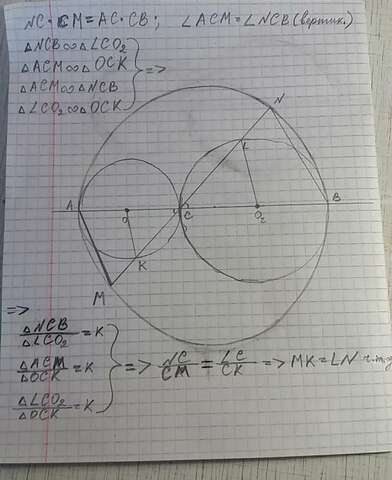 NC · CM = AC · CB; ∠ACM = ∠NCB (вертик.)
△NCB ∞ △LCO₂
△ACM ∞ △OCK
△ACM ∞ △NCB
△LCO₂ ∞ △OCK
=>
N
L
A
O
C
O₂
B
K
M
=>
△NCB / △LCO₂ = K
△ACM / △OCK = K
△LCO₂ / △OCK = K
=> NC / CM = LC / CK => MK = LN ч.т.д